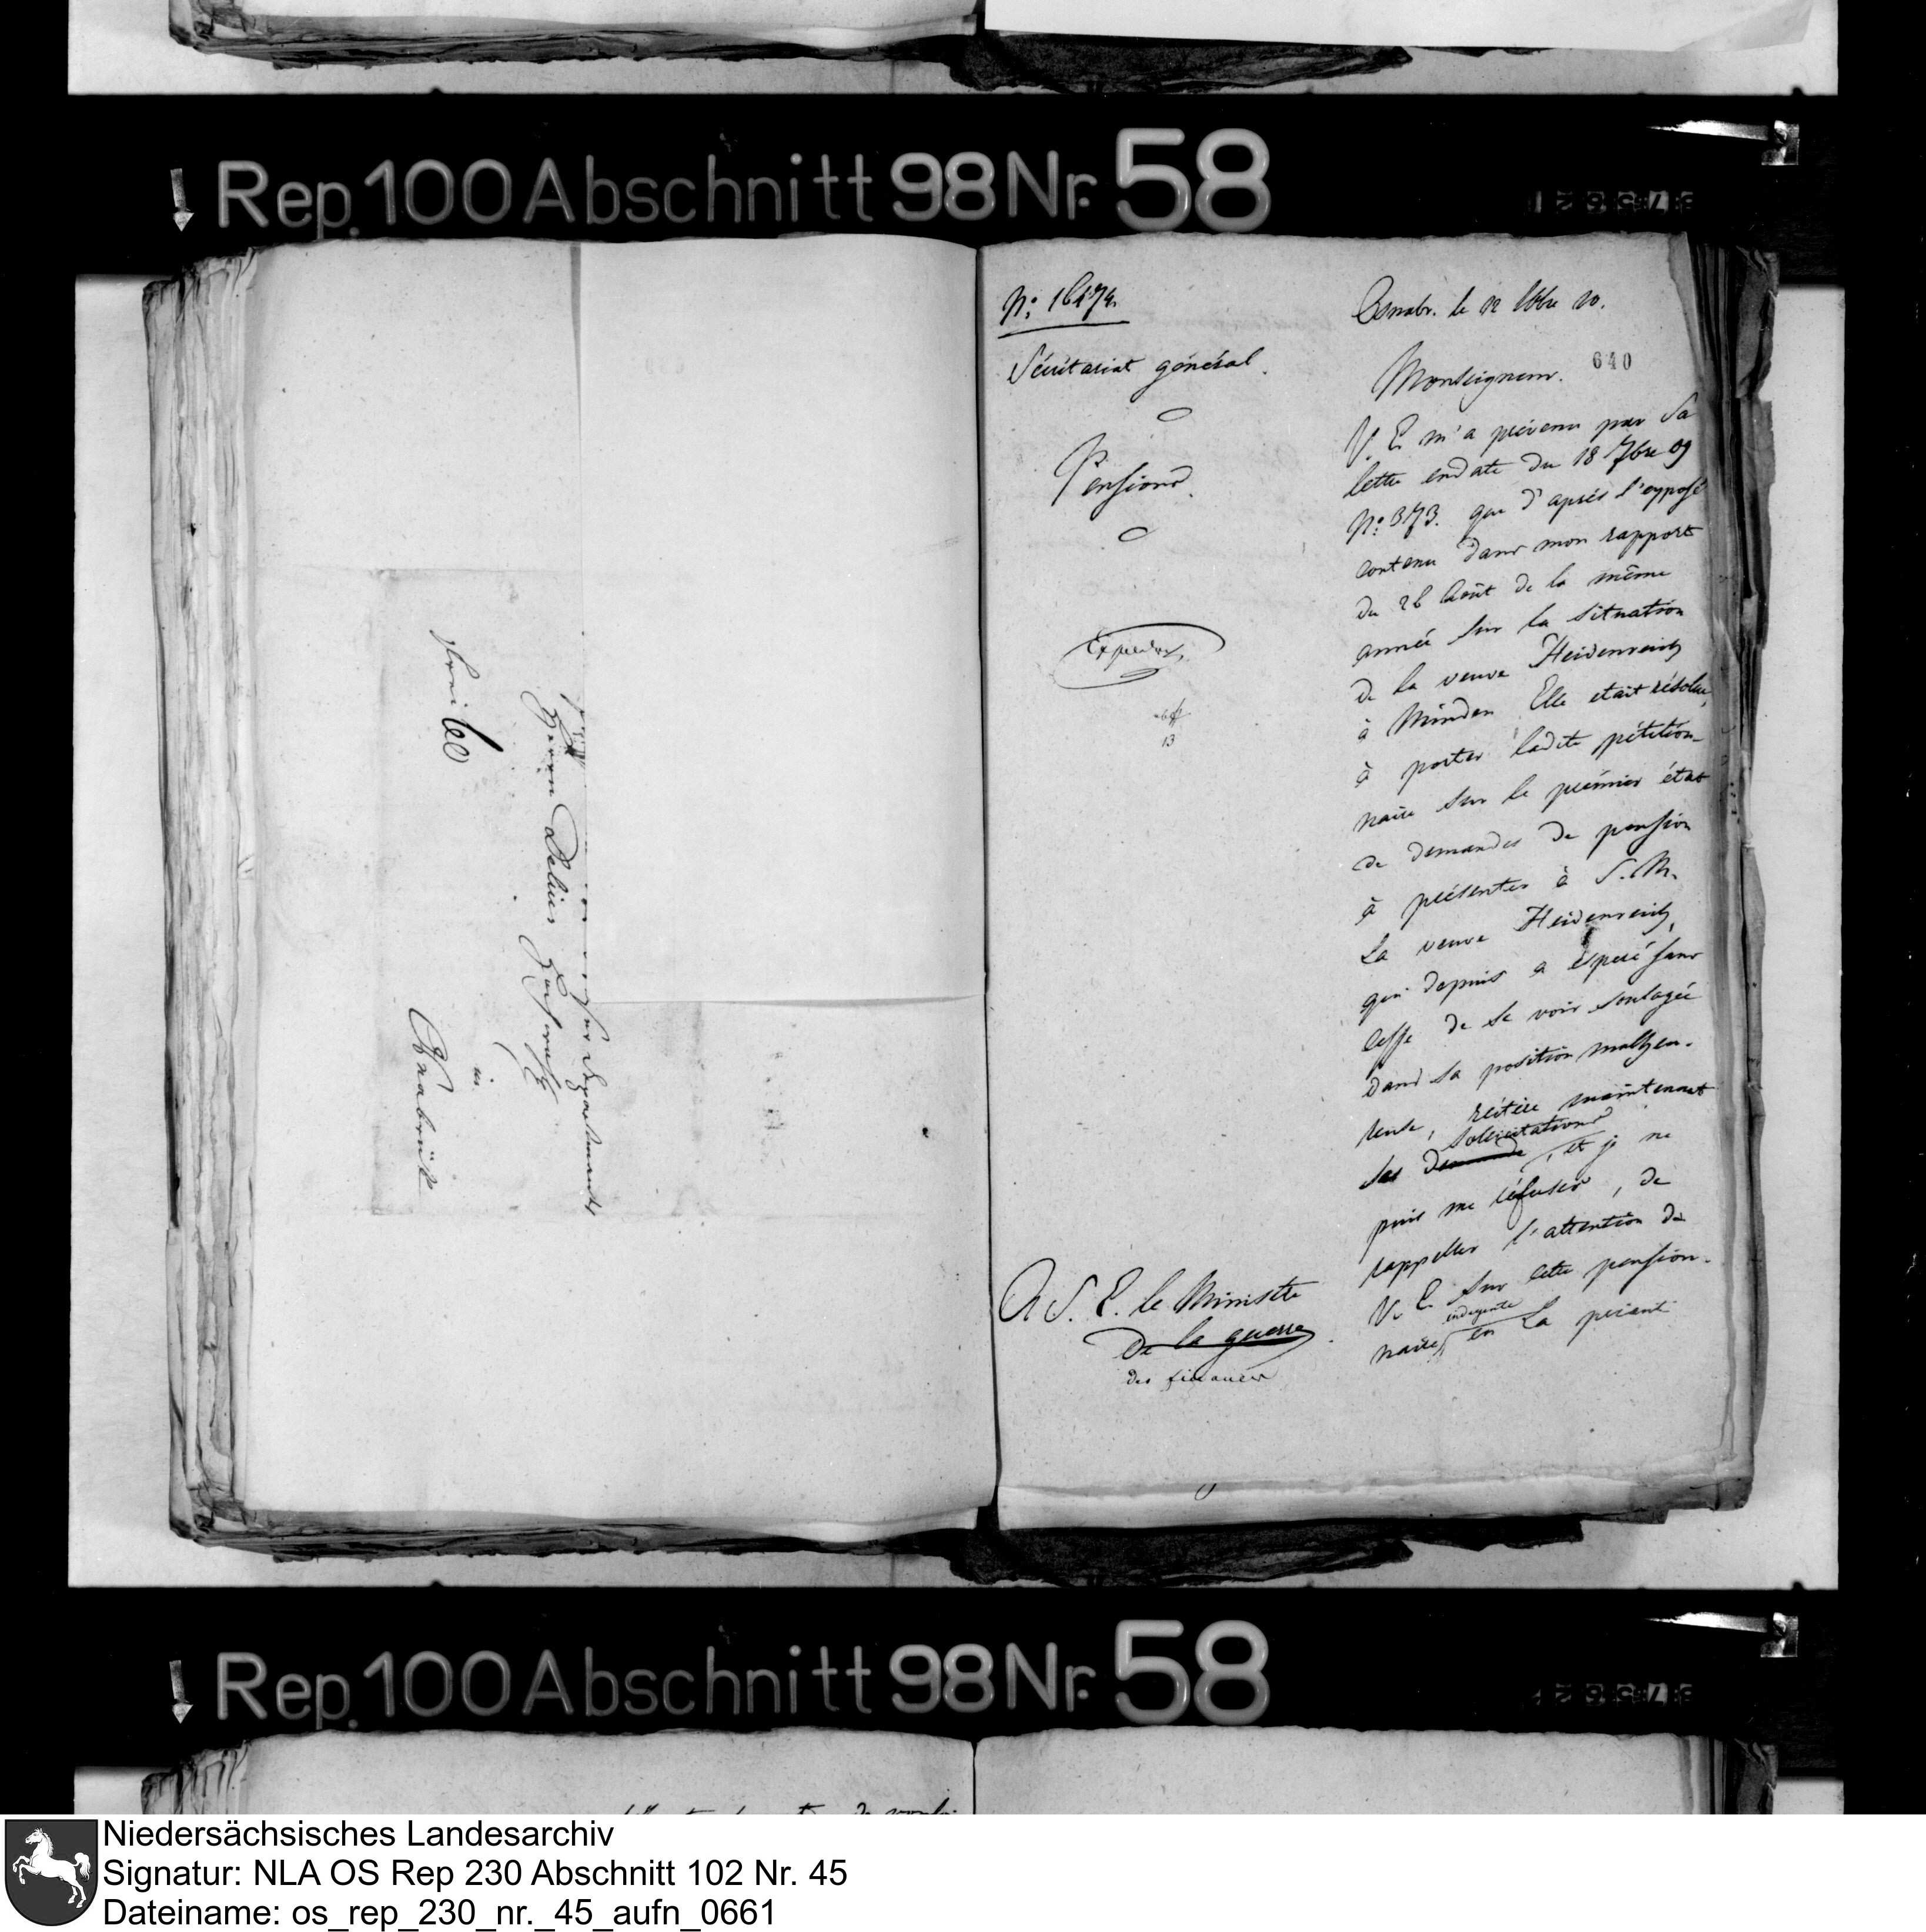 Rep. 100 Abschnitt 98 Nr. 58
frei
Herrn Delius
in
Osnabrück
Departements
Nº 16474.
Sécrétariat général.
Pensions.
Expedié
13
A S. E. le Ministre
de la guerre
des finances
Osnabr. le 12 Xbre 10.
640
Monseigneur.
V. E. m'a prévenu par Sa
lettre en date du 18 7bre 09
Nº 373. que d'après l'exposé
contenu dans mon rapport
du 26 Août de la même
année sur la situation
de la veuve Heidenreich
à Minden Elle etait résolue,
à porter ladite pétition-
naire sur le prémier état
de demandes de pension
à présenter à S. M.
La veuve Heidenreich,
qui depuis a espéré sans
cesse de se voir soulagée
dans sa position malheu-
reuse, réitère maintenant
solicitations
ses demande, et je ne
puis me réfuser, de
rappeller l'attention de
V. E. sur cette pension-
indigente
naire, en La priant
Rep. 100 Abschnitt 98 Nr. 58
Niedersächsisches Landesarchiv
Signatur: NLA OS Rep 230 Abschnitt 102 Nr. 45
Dateiname: os_rep_230_nr._45_aufn_0661